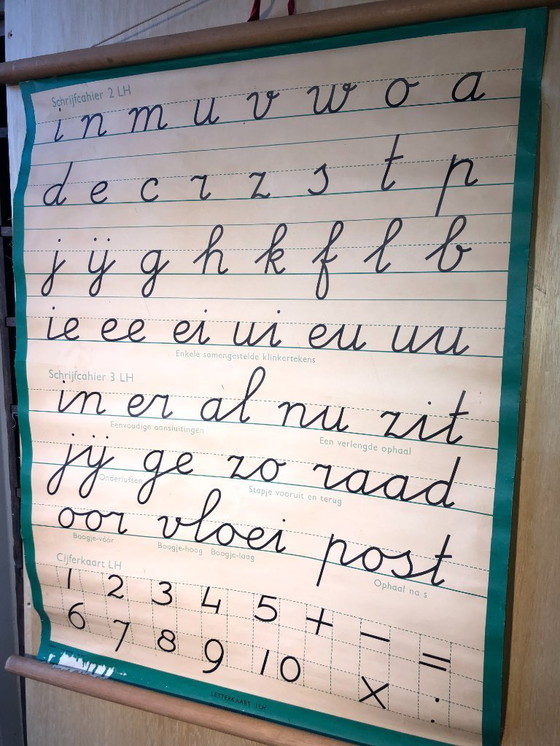 Schrijfcahier 2 LH
i n m u v w o a
d e c r z s t p
j ij g h k f l b
ie ee ei ui eu uu
Enkele samengestelde klinkertekens
Schrijfcahier 3 LH
in er al nu zit
Eenvoudige aansluitingen Een verlengde ophaal
jij ge zo raad
Onderlussen Stapje vooruit en terug
oor vloei post
Boogje-vóór Boogje-hoog Boogje-laag Ophaal na s
Cijferkaart LH
1 2 3 4 5 + - =
6 7 8 9 10 x :
LETTERKAART LH